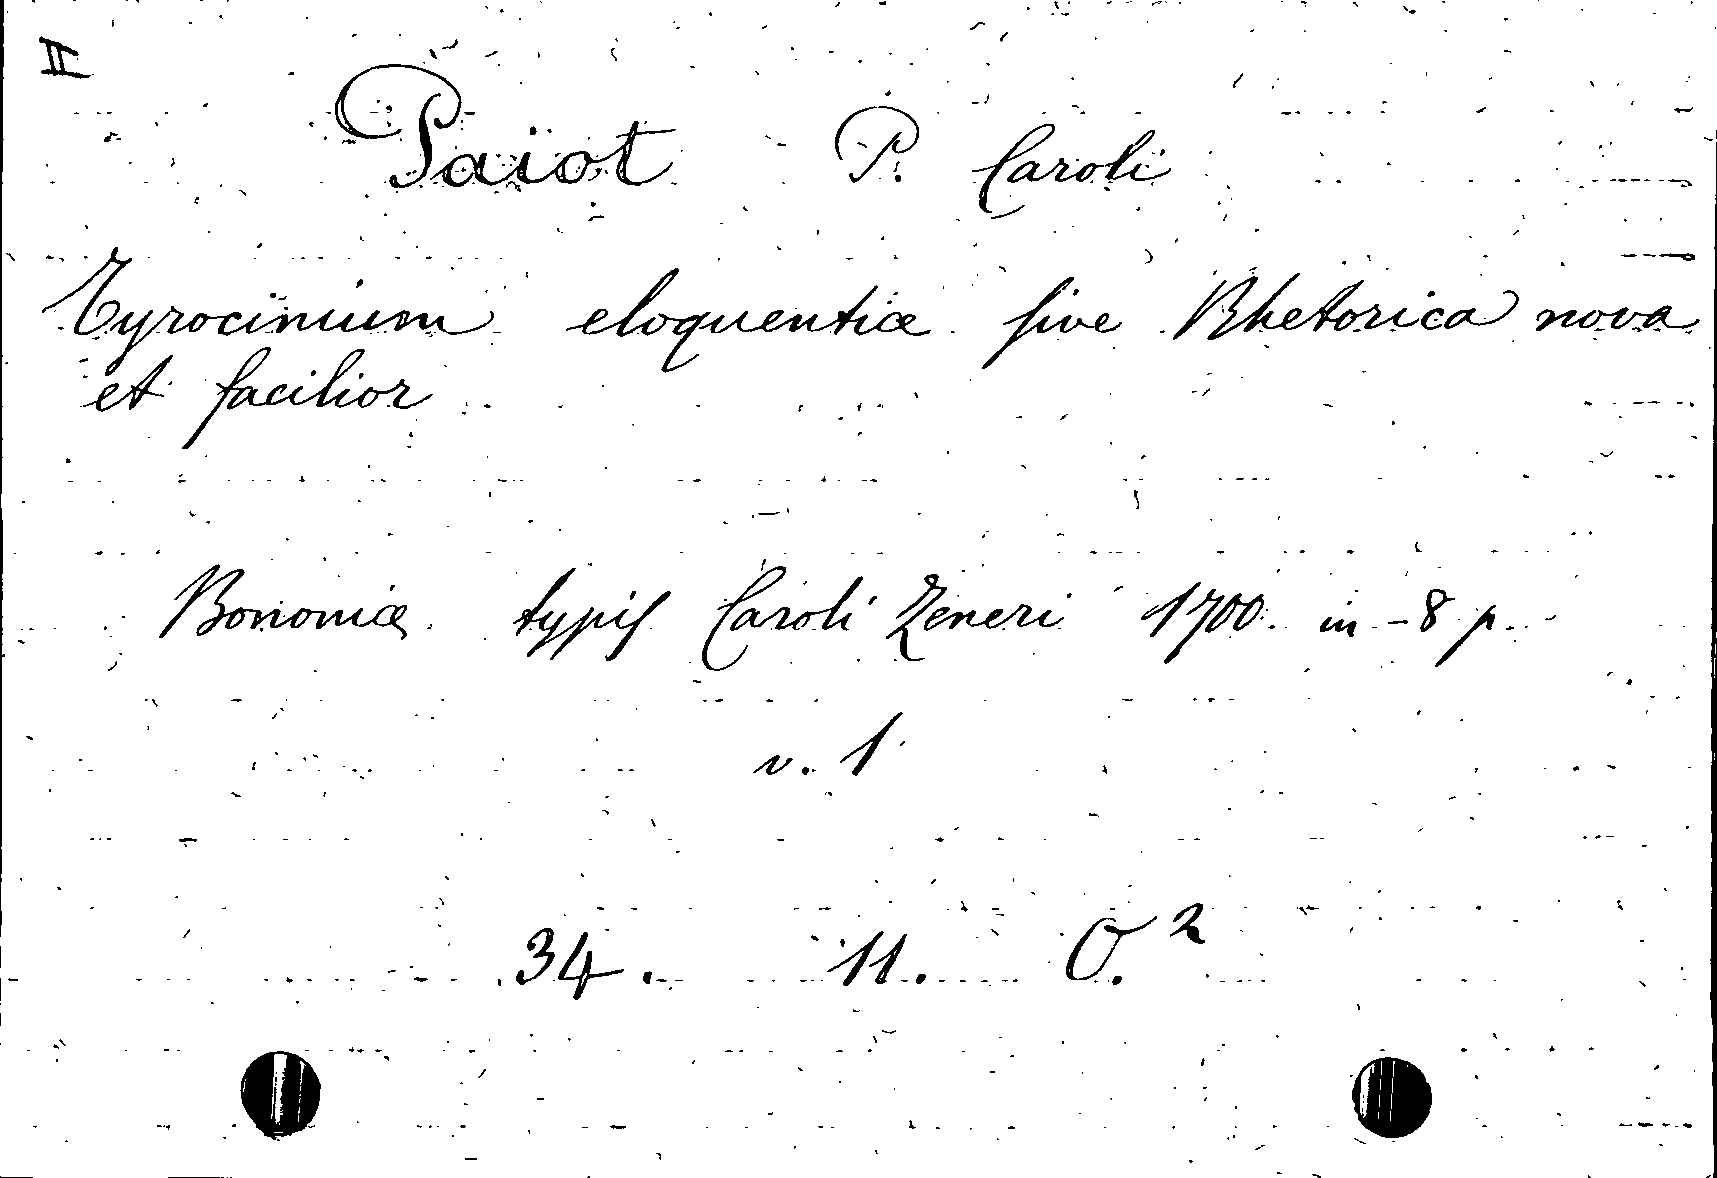 II
Païot P. Caroli
Tyrocinium eloquentiæ sive Rhetorica nova
et facilior
Bononiæ typis Caroli Zeneri 1700 in-8 p.
v. 1
34. 11. O.²